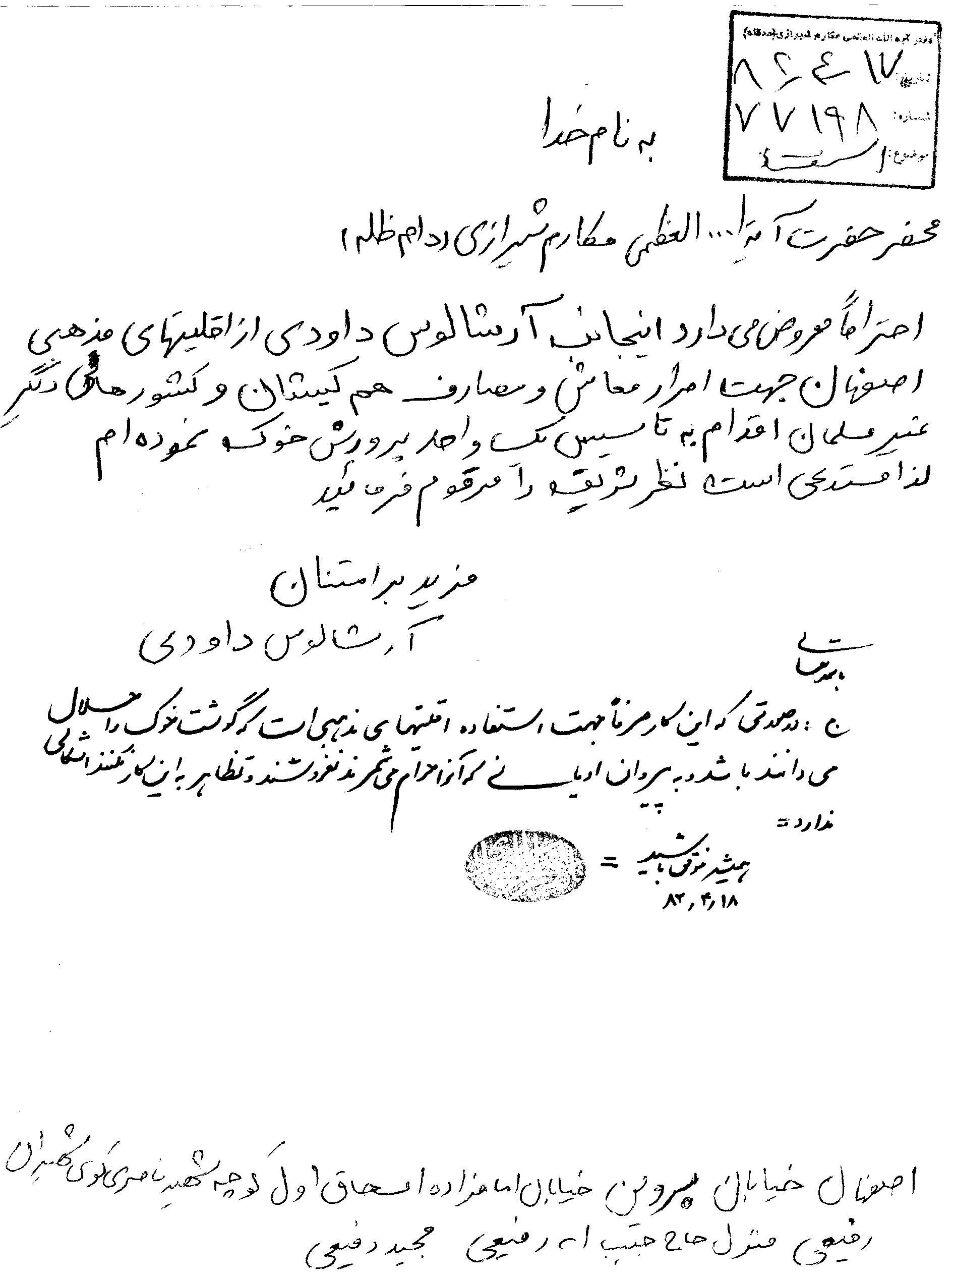 دفتر آیة الله العظمی مکارم شیرازی (مدظله)
تاریخ: ۸۲ ۴ ۱۷
شماره: ۷۷۱۹۸
موضوع:
به نام خدا
محضر حضرت آیة ا... العظمی مکارم شیرازی (دام ظله)
احتراماً معروض می دارد اینجانب آرشالوس داودی از اقلیتهای مذهبی
اصفهان جهت امرار معاش و مصارف هم کیشان و کشورهای دگر
غیر مسلمان اقدام به تاسیس یک واحد پرورش خوک نموده ام
لذا مستدعی است نظر شریف را مرقوم فرمائید
مزید بر امتنان
آرشالوس داودی
باسمه تعالی
ج: در صورتی که این کار صرفاً جهت استفاده اقلیتهای مذهبی است که گوشت خوک را حلال
می دانند باشد و به پیروان ادیانی که آنرا حرام می شمرند نفروشند و تظاهر به این کار نکنند اشکالی
ندارد =
همیشه موفق باشید =
۸۲٫۴٫۱۸
اصفهان خیابان پروین خیابان امامزاده اسحاق اول کوچه شهید ناصری کوی شهیدان
رفیعی منزل حاج حبیب اله رفیعی مجید رفیعی